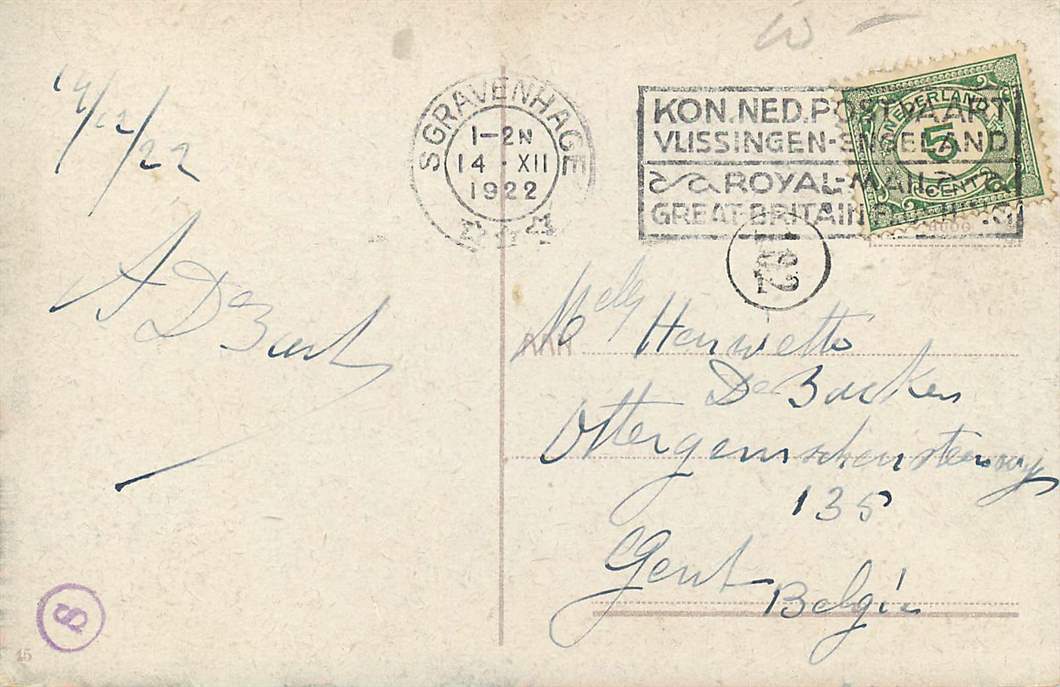 14/12/22
A De
S GRAVENHAGE
1-2N
14 XII
1922
KON.NED.POSTVAART
VLISSINGEN-ENGELAND
ROYAL-MAIL
GREAT BRITAIN
NEDERLAND
5
CENT
Henriette
De Backer
Ottergemschensteenweg
135
Gent
België
S
15